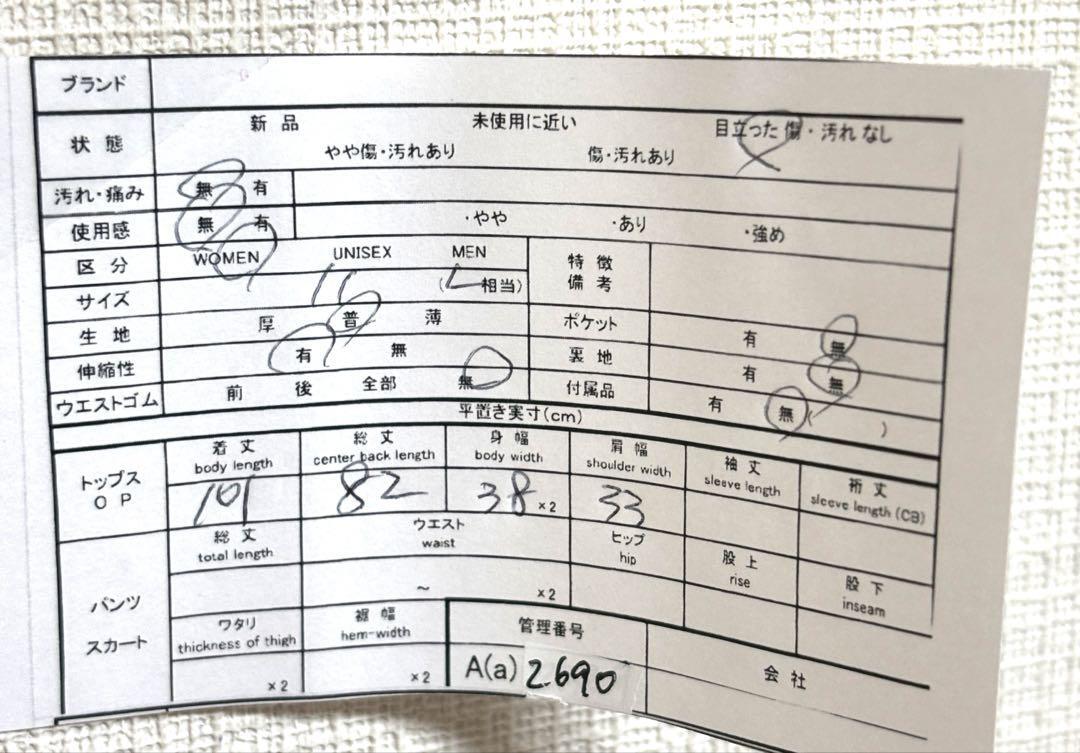 ブランド
状態 新品 未使用に近い 目立った傷・汚れなし
やや傷・汚れあり 傷・汚れあり
汚れ・痛み 無 有
使用感 無 有 ・やや ・あり ・強め
区分 WOMEN UNISEX MEN 特徴
備考
サイズ 11 (L相当)
生地 厚 普 薄 ポケット 有 無
伸縮性 有 無 裏地 有 無
ウエストゴム 前 後 全部 無 付属品 有 無( )
平置き実寸(cm)
トップス
OP
着丈 総丈 身幅 肩幅 袖丈 裄丈
body length center back length body width shoulder width sleeve length sleeve length (CB)
101 82 38 ×2 33
パンツ
スカート
総丈 ウエスト ヒップ 股上 股下
total length waist hip rise inseam
~ ×2
ワタリ 裾幅 管理番号 会社
thickness of thigh hem-width
×2 ×2 A(a) 2690